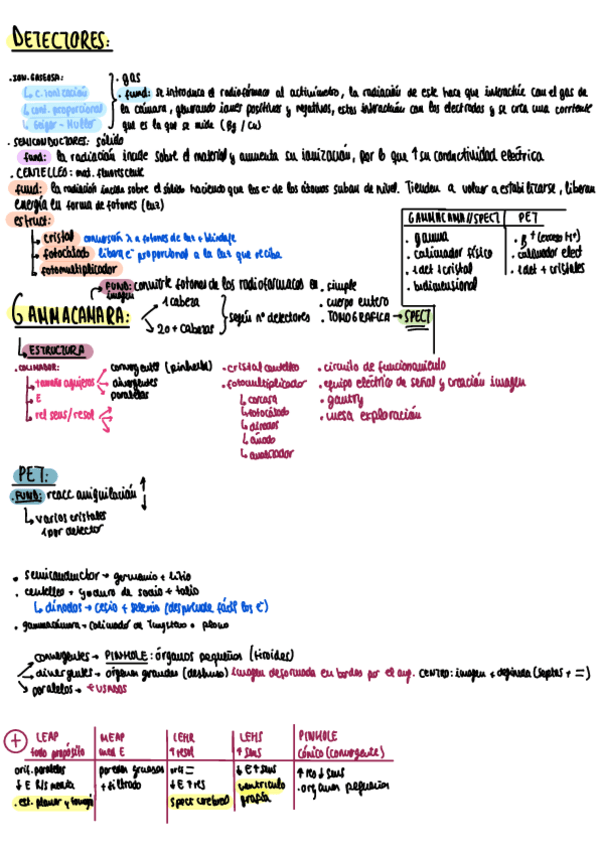 DETECTORES:
. ION. GASEOSA: . gas
↳ c. ionización . fund: se introduce el radiofármaco al activímetro, la radiación de este hace que interactúe con el gas de
↳ cont. proporcional la cámara, generando iones positivos y negativos, estos interactúan con los electrodos y se crea una corriente
↳ Geiger - Muller que es lo que se mide (Bq / Cu)
. SEMICONDUCTORES: sólido
fund: la radiación incide sobre el material y aumenta su ionización, por lo que ↑ su conductividad eléctrica.
. CENTELLEO: mat. fluorescente
fund: la radiación incide sobre el sólido haciendo que los e- de los átomos suban de nivel. Tienden a volver a estabilizarse, liberan
energía en forma de fotones (luz)
estruct:
↳ cristal conversión λ a fotones de luz + blindaje
↳ fotocátodo libera e- proporcional a la luz que reciba
↳ fotomultiplicador
GAMMACAMA//SPECT PET
. gamma . β+ (exceso H+)
. colimador físico . colimador elect
. 1 det 1 cristal . 1 det + cristales
. bidimensional
→ FUND: convierte fotones de los radiofármacos en imagen . simple
GAMMACAMARA: 1 cabeza . cuerpo entero
2 o + cabezas según nº detectores . TOMOGRAFICA → SPECT
↳ ESTRUCTURA
. COLIMADOR: convergente (pinhole) . cristal centelleo . circuito de funcionamiento
↳ tamaño agujeros divergentes . fotomultiplicador . equipo eléctrico de señal y creación imagen
↳ E paralelas ↳ carcasa . gantry
↳ rel sens/resol ↳ fotocátodo . mesa exploración
↳ dinodos
↳ ánodo
↳ analizador
PET:
. FUND: reacc aniquilación
↳ varios cristales
1 por detector
. semiconductor → germanio + litio
. centelleo → yoduro de sodio + talio
↳ dínodos → cesio + selenio (desprende fácil los e-)
. gammacámara → colimador de tungsteno o plomo
convergentes → PINHOLE: órganos pequeños (tiroides)
divergentes → órganos grandes imagen deformada en bordes por el ang. CENTRO: imagen + definida (septas + =)
paralelos → + USADOS
+ LEAP MEAP LEHR LEHS PINHOLE
todo propósito med E ↑ resol ↑ sens cónico (convergente)
orif. paralelos paredes gruesas orif = ↓ E ↑ sens ↑ res ↓ sens
↓ E R/S media + filtrado ↓ E ↑ RS ventriculo . organos pequeños
. est. planar y tomogr spect cerebral grafía